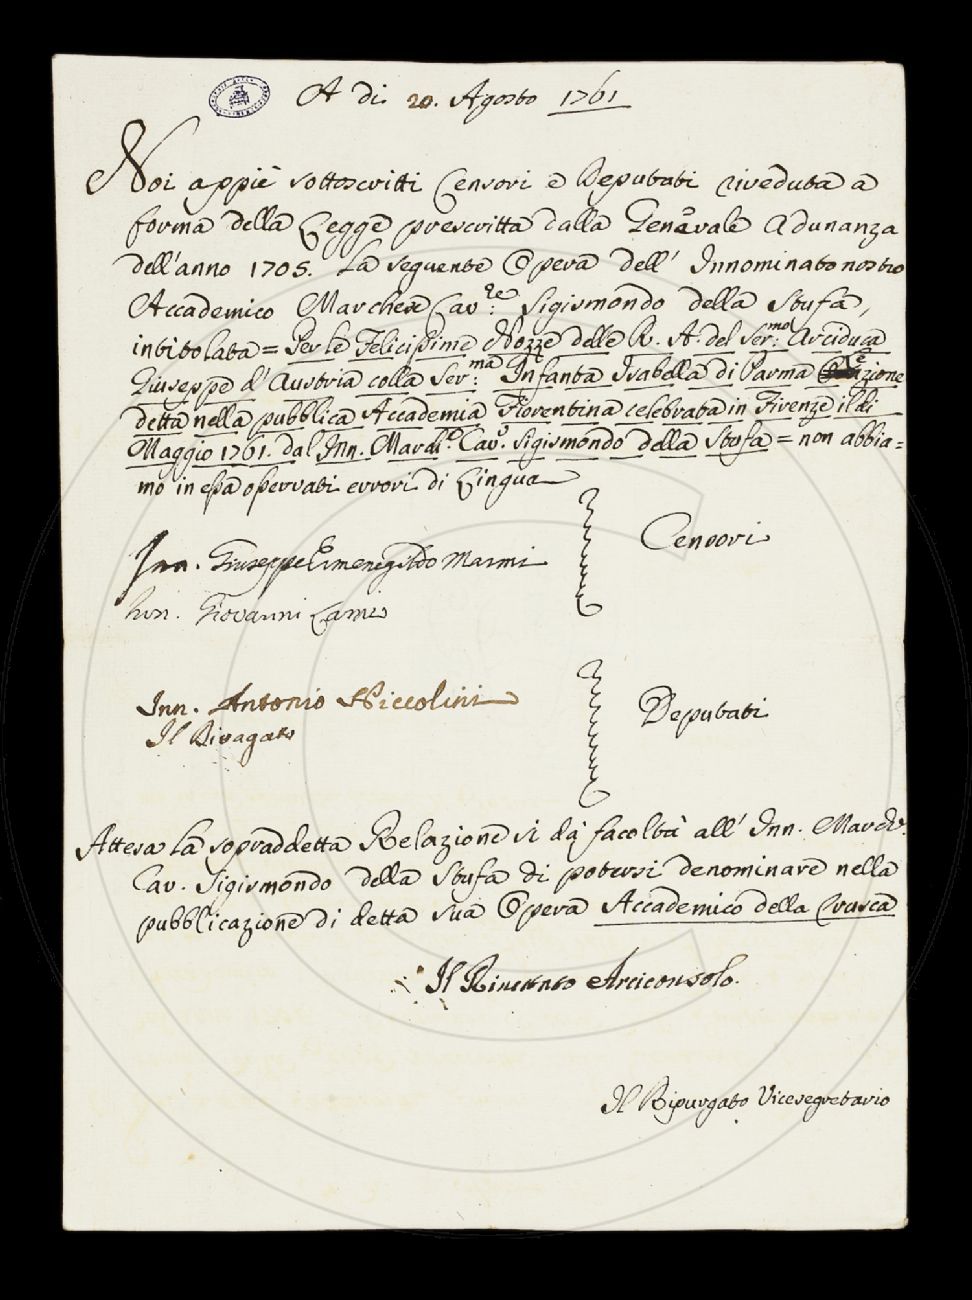 A di 20. Agosto 1761
Noi appiè sottoscritti Censori e Deputati riveduta a
forma della Legge prescritta dalla Generale Adunanza
dell'anno 1705. La seguente Opera dell' Innominato nostro
Accademico Marchese Cav:re Sigismondo della Stufa,
intitolata = Per le Felicissime Nozze delle R. A. del Ser:mo Arciduca
Giuseppe d'Austria colla Ser:ma Infanta Isabella di Parma Orazione
detta nella pubblica Accademia Fiorentina celebrata in Firenze il di
Maggio 1761. dal Inn. March.e Cav.e Sigismondo della Stufa = non abbia=
mo in essa osservati errori di Lingua
Inn. Giuseppe Ermenegildo Marmi
Censori
Inn. Giovanni Lami
Inn. Antonio Niccolini
Deputati
Il
Attesa la sopraddetta Relazione si dà facoltà all' Inn. March.e
Cav. Sigismondo della Stufa di potersi denominare nella
pubblicazione di detta sua Opera Accademico della Crusca
Il Arciconsolo.
Il Ripurgato Vicesegretario